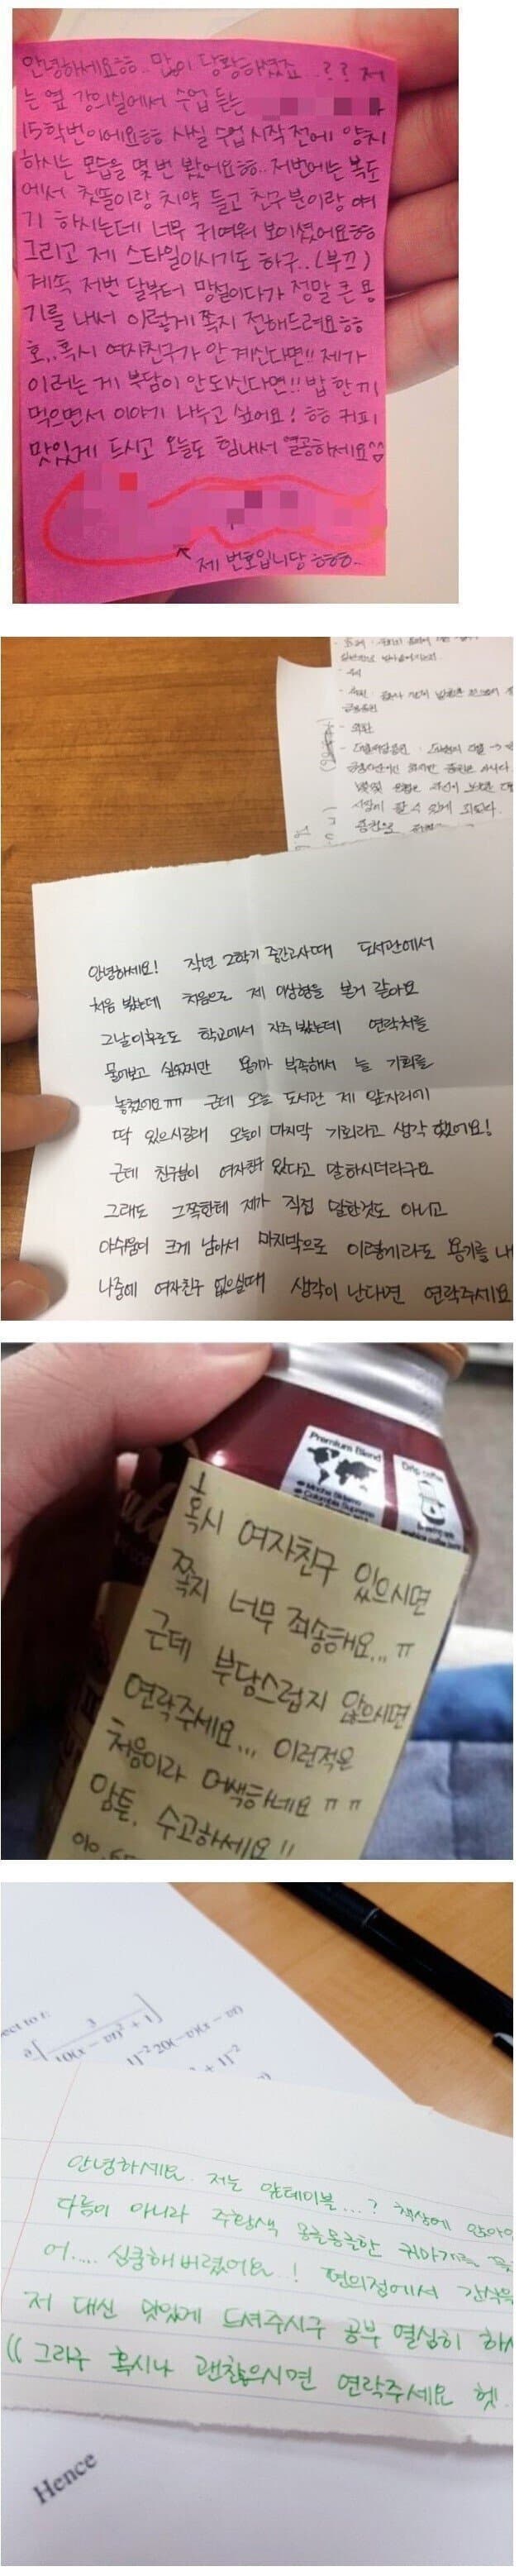 안녕하세요ㅎㅎ.. 많이 당황하셨죠..?? 저
는 옆 강의실에서 수업 듣는
15학번이에요ㅎㅎ 사실 수업 시작 전에 양치
하시는 모습을 몇 번 봤어요ㅎㅎ.. 저번에는 복도
에서 칫똘이랑 치약 들고 친구분이랑 얘
기 하시는데 너무 귀여워 보이셨어요ㅎㅎ
그리고 제 스타일이시기도 하구..(부끄)
계속 저번 달부터 망설이다가 정말 큰 용
기를 내서 이렇게 쪽지 전해드려요ㅎㅎ
호,,혹시 여자친구가 안 계신다면!! 제가
이러는 게 부담이 안되신다면!! 밥 한 끼
먹으면서 이야기 나누고 싶어요! ㅎㅎ 커피
맛있게 드시고 오늘도 힘내서 열공하세요^^
제 번호입니당 ㅎㅎㅎ..
안녕하세요! 작년 2학기 중간고사때 도서관에서
처음 봤는데 처음으로 제 이상형을 본거 같아요
그날이후로도 학교에서 자주 봤는데 연락처를
물어보고 싶었지만 용기가 부족해서 늘 기회를
놓쳤어요ㅠㅠ 근데 오늘 도서관 제 앞자리에
딱 있으시길래 오늘이 마지막 기회라고 생각 했어요!
근데 친구분이 여자친구 있다고 말하시더라구요
그래도 그쪽한테 제가 직접 말한것도 아니고
아쉬움이 크게 남아서 마지막으로 이렇게라도 용기를 내
나중에 여자친구 없으실때 생각이 난다면 연락주세요
Premium Blend
Drip coffee
혹시 여자친구 있으시면
쪽지 너무 죄송해요... ㅠ
근데 부담스럽지 않으시면
연락주세요... 이런적은
처음이라 어색하네요 ㅠㅠ
암튼, 수고하세요!!
010.65
안녕하세요. 저는 앞테이블...? 책상에 앉아
다름이 아니라 주황색 몽글몽글한 귀마개를
어.... 심쿵해버렸어요! 편의점에서 간식을
저 대신 맛있게 드셔주시구 공부 열심히 하
(( 그리구 혹시나 괜찮으시면 연락주세요 헷!
Hence